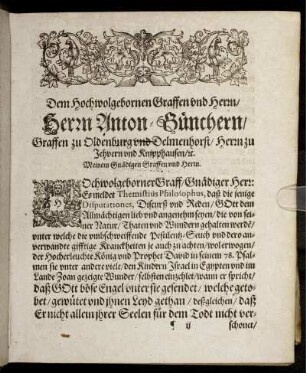 Dem Hochwolgebornen Graffen vnd Herrn/
Herrn Anton-Günthern/
Graffen zu Oldenburg vnd Delmenhorst/ Herrn zu
Jehvern vnd Knyphausen/ ꝛc.
Meinem Gnädigen Graffen vnd Herrn.
HOchwolgeborner Graff/ Gnädiger Herr:
Es meldet Themistius Philosophus, daß die jenige
Disputationes, Discurß vnd Reden/ GOtt dem
Allmächtigen lieb vnd angenehm seyn/ die von sei-
ner Natur/ Thaten vnd Wundern gehalten werdẽ/
vnter welche die vmbschweiffende Pestilentz-Seuch vnd dero an-
verwandte gifftige Kranckheiten je auch zu achten/ wol erwogen/
der Hocherleuchte König vnd Prophet David in seinem 78. Psal-
men sie vnter andere viele/ den Kindern Jsrael in Egypten vnd im
Lande Zoan gezeigte Wunder/ selbsten einzehlet/ wann er spricht/
daß GOtt böse Engel vnter sie gesendet/ welche geto-
bet/ gewütet vnd jhnen Leyd gethan/ deßgleichen/ daß
Er nicht allein jhrer Seelen für dem Todt nicht ver-
¶ ij
schonet/